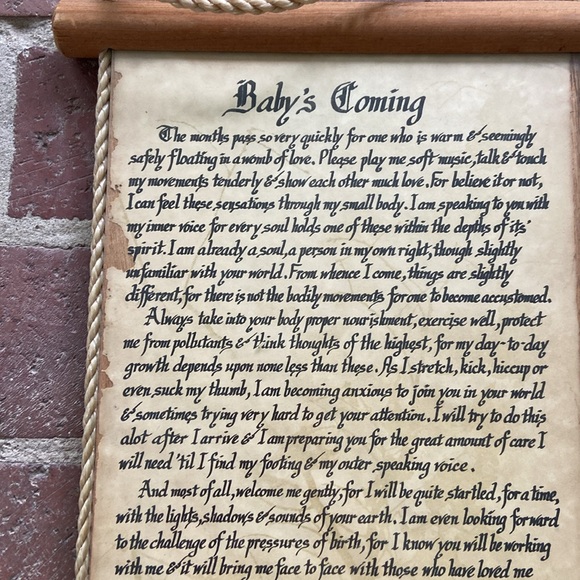 Baby's Coming
The months pass so very quickly for one who is warm & seemingly
safely floating in a womb of love. Please play me soft music, talk & touch
my movements tenderly & show each other much love. For believe it or not,
I can feel these sensations through my small body. I am speaking to you with
my inner voice for every soul holds one of these within the depths of its'
spirit. I am already a soul, a person in my own right, though slightly
unfamiliar with your world. From whence I come, things are slightly
different, for there is not the bodily movements for one to become accustomed.
Always take into your body proper nourishment, exercise well, protect
me from pollutants & think thoughts of the highest, for my day-to-day
growth depends upon none less than these. As I stretch, kick, hiccup or
even suck my thumb, I am becoming anxious to join you in your world
& sometimes trying very hard to get your attention. I will try to do this
alot after I arrive & I am preparing you for the great amount of care I
will need 'til I find my footing & my outer speaking voice.
And most of all, welcome me gently, for I will be quite startled, for a time,
with the lights, shadows & sounds of your earth. I am even looking forward
to the challenge of the pressures of birth, for I know you will be working
with me & it will bring me face to face with those who have loved me